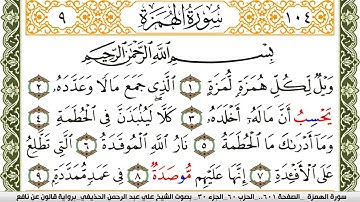 ١٠٤ سُورَةُ الْهُمَزَةِ ٩
بِسْمِ اللَّهِ الرَّحْمَٰنِ الرَّحِيمِ
وَيْلٌ لِّكُلِّ هُمَزَةٍ لُّمَزَةٍ ١ الَّذِي جَمَعَ مَالًا وَعَدَّدَهُ ٢
يَحْسِبُ أَنَّ مَالَهُ أَخْلَدَهُ ٣ كَلَّا لَيُنبَذَنَّ فِي الْحُطَمَةِ ٤
وَمَا أَدْرَىٰكَ مَا الْحُطَمَةُ ٥ نَارُ اللَّهِ الْمُوقَدَةُ ٦ الَّتِي تَطَّلِعُ
عَلَى الْأَفْـِٔدَةِ ٧ إِنَّهَا عَلَيْهِم مُّوصَدَةٌ ٨ فِي عَمَدٍ مُّمَدَّدَةٍ ٩
سورة الهمزة .. الصفحة ٦٠١.. الحزب ٦٠ .الجزء ٣٠ . بصوت الشيخ علي عبد الرحمن الحذيفي .برواية قالون عن نافع